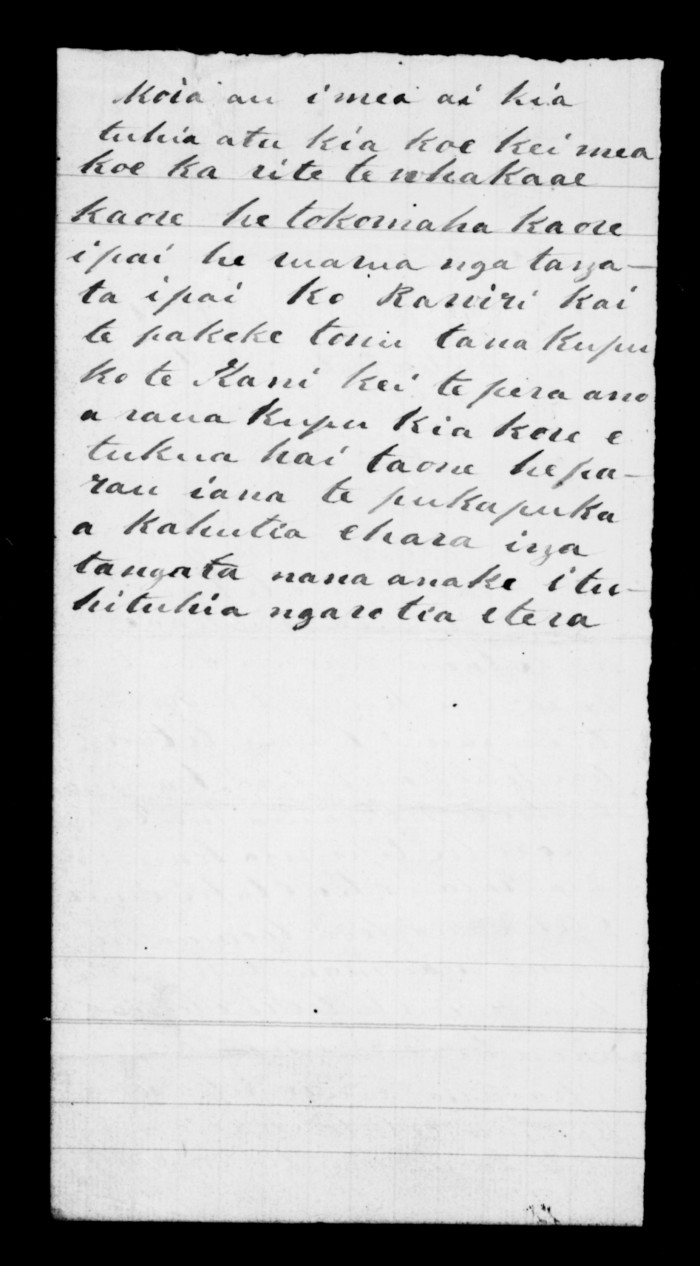 koia au i mea ai kia
tuhia atu kia koe kei mea
koe ka rite te whakaae
kaore he tokomaha kaore
i pai he marua nga tanga-
ta i pai ko Rawiri kai
te pakeke tonu tana kupu
ko te Kani kei te pera ano
a raua kupu kia kore e
tukua hai taone he pa-
rau iana te pukapuka
a kahutia ehara inga
tangata nana anake i tu-
hituhia ngaro tia etera